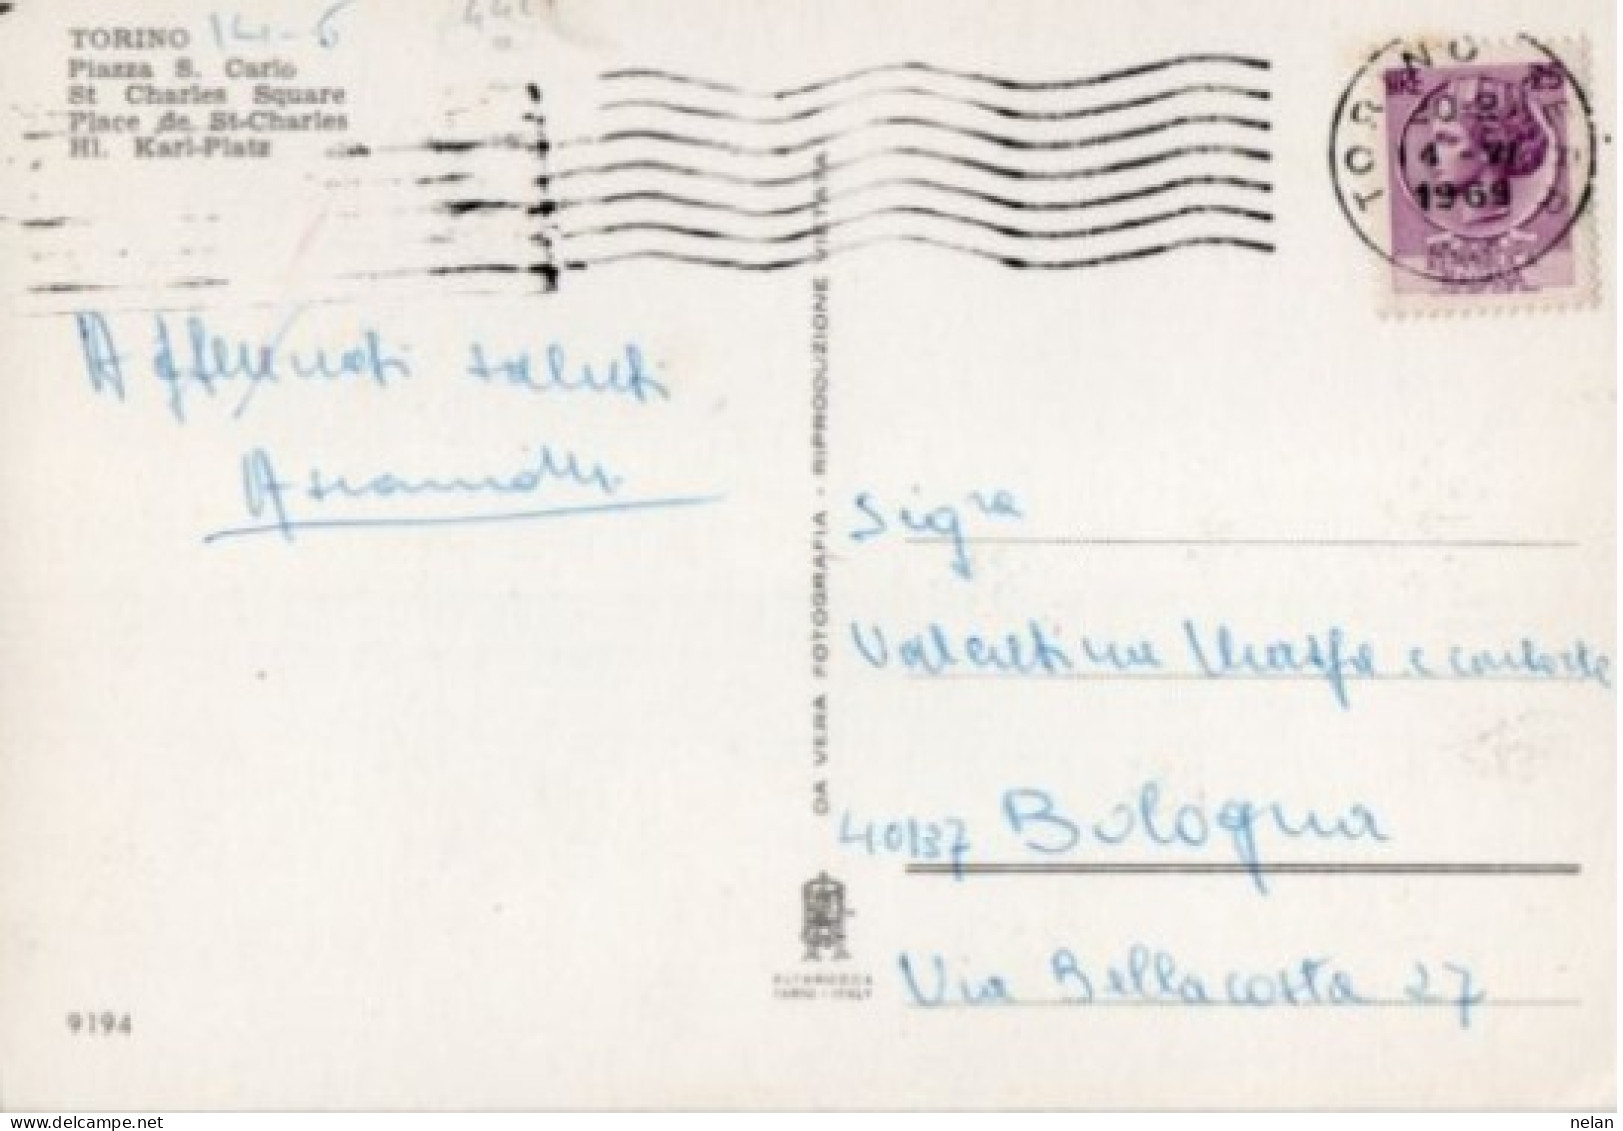 TORINO 14-6
Piazza S. Carlo
St Charles Square
Place de St-Charles
Hl. Karl-Platz
TORINO
20-21
4 - VI
1969
LIRE 25
Affettuosi saluti
DA VERA FOTOGRAFIA - RIPRODUZIONE VIETATA
Sig.ra
Valentina e consorte
40137 Bologna
Via Bellacosta 27
9194
nelan